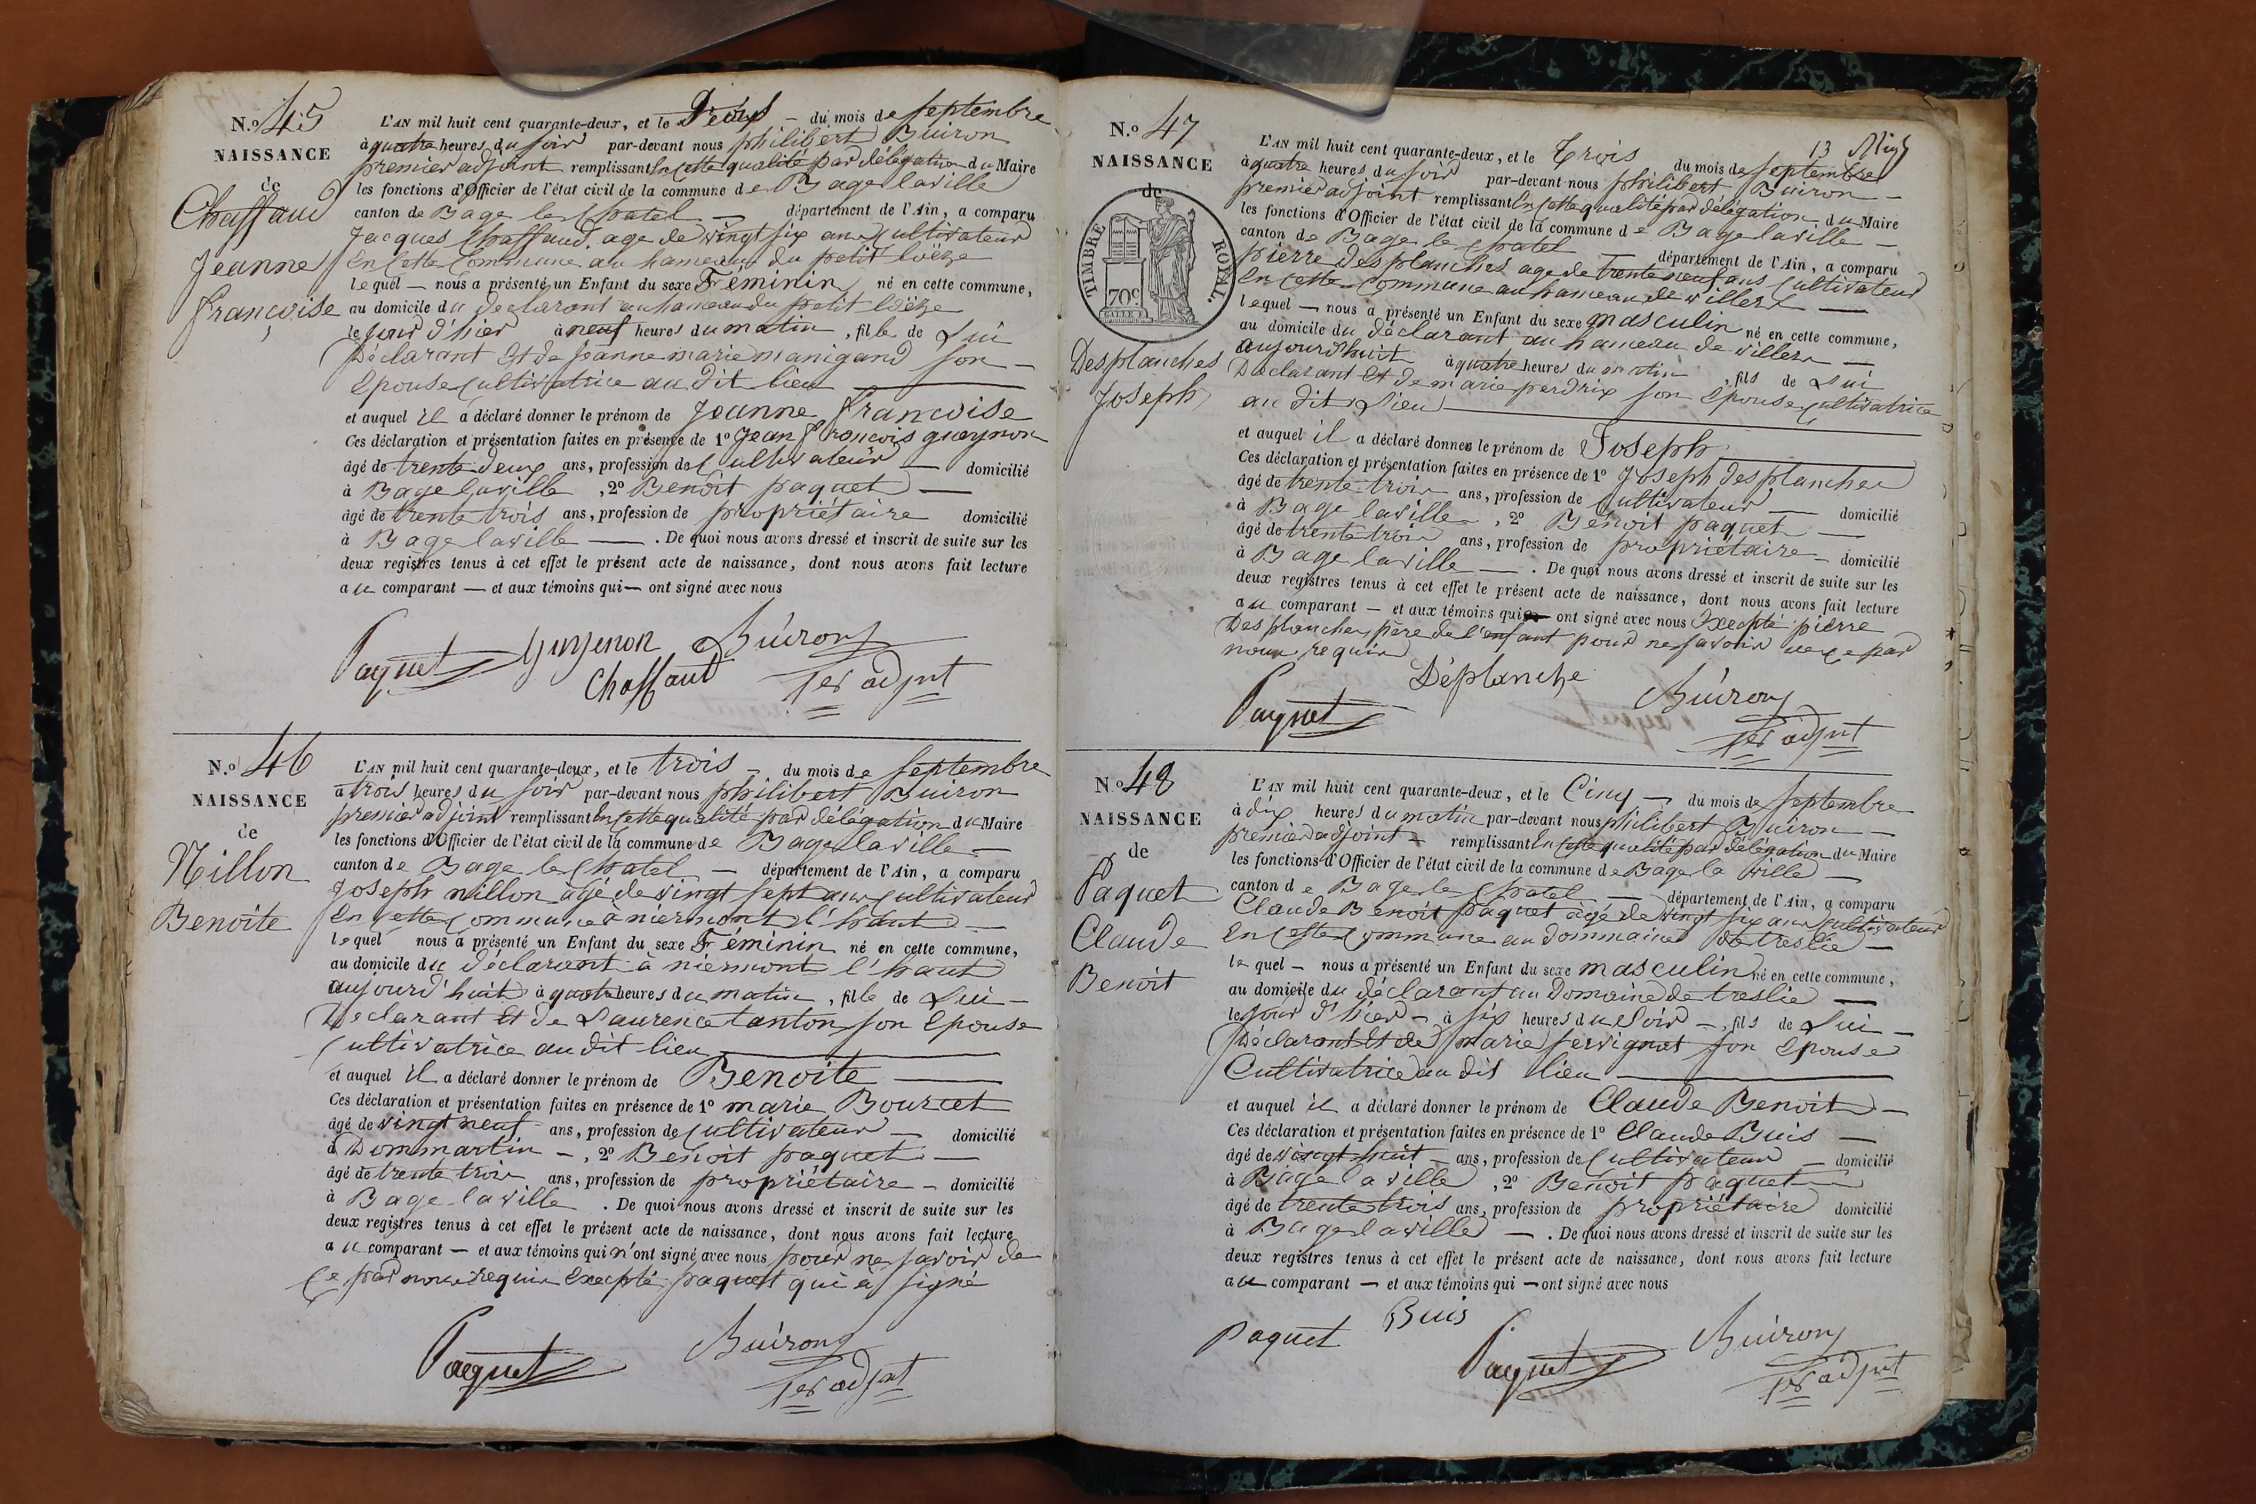 N.º 45
NAISSANCE
de
Chaffaud
Jeanne
francoise
L'AN mil huit cent quarante-deux, et le Deux – du mois de septembre
à quatre heures du soir par-devant nous philibert Buiron
premier adjoint remplissant En cette qualité par délégation du Maire
les fonctions d'Officier de l'état civil de la commune de Bage laville
canton de Bage le Chatel — département de l'Ain, a comparu
Jacques Chaffaud, age de vingt six ans Cultivateur
En Cette Commune au hameau du petit loëze
lequel — nous a présenté un Enfant du sexe Féminin né en cette commune,
au domicile du declarant au hameau du petit loëze
le jour d'hier à neuf heures du matin, fille de Lui
Déclarant Et de Jeanne marie manigand son –
Epouse Cultivatrice au dit lieu
et auquel il a déclaré donner le prénom de Jeanne francoise
Ces déclaration et présentation faites en présence de 1º Jean francois gueynon
âgé de trente deux ans, profession de Cultivateur — domicilié
à Bage laville, 2º Benoit paquet —
âgé de trente trois ans, profession de propriétaire domicilié
à Bage laville — . De quoi nous avons dressé et inscrit de suite sur les
deux registres tenus à cet effet le présent acte de naissance, dont nous avons fait lecture
au comparant — et aux témoins qui — ont signé avec nous
Paquet Guyenon Buiron
Chaffaud 1er adjnt
N.º 46
NAISSANCE
de
Nillon
Benoite
L'AN mil huit cent quarante-deux, et le trois – du mois de septembre
à trois heures du soir par-devant nous philibert Buiron
premier adjoint remplissant En cette qualité par délégation du Maire
les fonctions d'Officier de l'état civil de la commune de Bage laville —
canton de Bage le Chatel — département de l'Ain, a comparu
Joseph nillon agé de vingt sept ans Cultivateur
En Cette Commune à niermont l'haut
lequel nous a présenté un Enfant du sexe Féminin né en cette commune,
au domicile du déclarant à niermont l'haut
aujourd'huit à quatre heures du matin, fille de Lui –
Declarant Et de Laurence tanton son Epouse
Cultivatrice au dit lieu
et auquel il a déclaré donner le prénom de Benoite —
Ces déclaration et présentation faites en présence de 1º marie Bourcet
âgé de vingt neuf ans, profession de Cultivateur — domicilié
à Dommartin –, 2º Benoit paquet —
âgé de trente trois ans, profession de propriétaire – domicilié
à Bage laville . De quoi nous avons dressé et inscrit de suite sur les
deux registres tenus à cet effet le présent acte de naissance, dont nous avons fait lecture
au comparant — et aux témoins qui n'ont signé avec nous pour ne savoir de
Ce par nous requis Excepté paquet qui à signé
Paquet Buiron
1er adjnt
13
N.º 47
NAISSANCE
de
TIMBRE ROYAL
70c.
Desplanches
Joseph
L'AN mil huit cent quarante-deux, et le Trois du mois de septembre
à quatre heures du soir par-devant nous philibert Buiron —
premier adjoint remplissant En cette qualité par délégation du Maire
les fonctions d'Officier de l'état civil de la commune de Bage laville —
canton de Bage le Chatel — département de l'Ain, a comparu
pierre desplanches age de trente neuf ans Cultivateur
En Cette Commune au hameau de villers —
lequel — nous a présenté un Enfant du sexe masculin né en cette commune,
au domicile du déclarant au hameau de villers —
aujourd'huit à quatre heures du matin, fils de Lui
Declarant Et de marie perdrix son Epouse Cultivatrice
au dit Lieu
et auquel il a déclaré donner le prénom de Joseph
Ces déclaration et présentation faites en présence de 1º Joseph desplanches
âgé de trente trois ans, profession de Cultivateur — domicilié
à Bage laville, 2º Benoit paquet —
âgé de trente trois ans, profession de propriétaire – domicilié
à Bage laville — . De quoi nous avons dressé et inscrit de suite sur les
deux registres tenus à cet effet le présent acte de naissance, dont nous avons fait lecture
au comparant — et aux témoins qui ont signé avec nous Excepté pierre
Desplanches père de l'enfant pour ne savoir de ce par
nous requis
Déplanche Buiron
Paquet 1er adjnt
N.º 48
NAISSANCE
de
Paquet
Claude
Benoit
L'AN mil huit cent quarante-deux, et le Cinq — du mois de septembre
à dix heures du matin par-devant nous philibert Buiron —
premier adjoint – remplissant En cette qualité par délégation du Maire
les fonctions d'Officier de l'état civil de la commune de Bage la ville —
canton de Bage le Chatel — département de l'Ain, a comparu
Claude Benoit paquet agé de vingt six ans Cultivateur
En Cette Commune au dommaine de treslie —
lequel — nous a présenté un Enfant du sexe masculin né en cette commune,
au domicile du déclarant au Domaine de treslie —
le jour d'hier – à six heures du soir –, fils de Lui –
Déclarant Et de marie servignat son Epouse
Cultivatrice au dit lieu
et auquel il a déclaré donner le prénom de Claude Benoit –
Ces déclaration et présentation faites en présence de 1º Claude Buis —
âgé de vingt huit ans, profession de Cultivateur — domicilié
à Bage laville, 2º Benoit paquet
âgé de trente trois ans, profession de propriétaire domicilié
à Bage laville — . De quoi nous avons dressé et inscrit de suite sur les
deux registres tenus à cet effet le présent acte de naissance, dont nous avons fait lecture
au comparant — et aux témoins qui — ont signé avec nous
Paquet Buis Paquet Buiron
1er adjnt